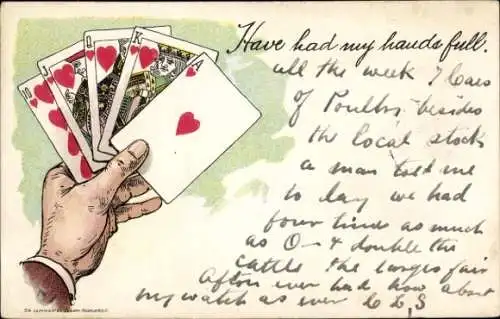 Have had my hands full.
all the week 7 Cars
of Poultry besides
the local stock
a man told me
to day we had
four times as much
as O— & double the
cattle the larges fair
ever had how about
my watch as ever
10
J
Q
K
A